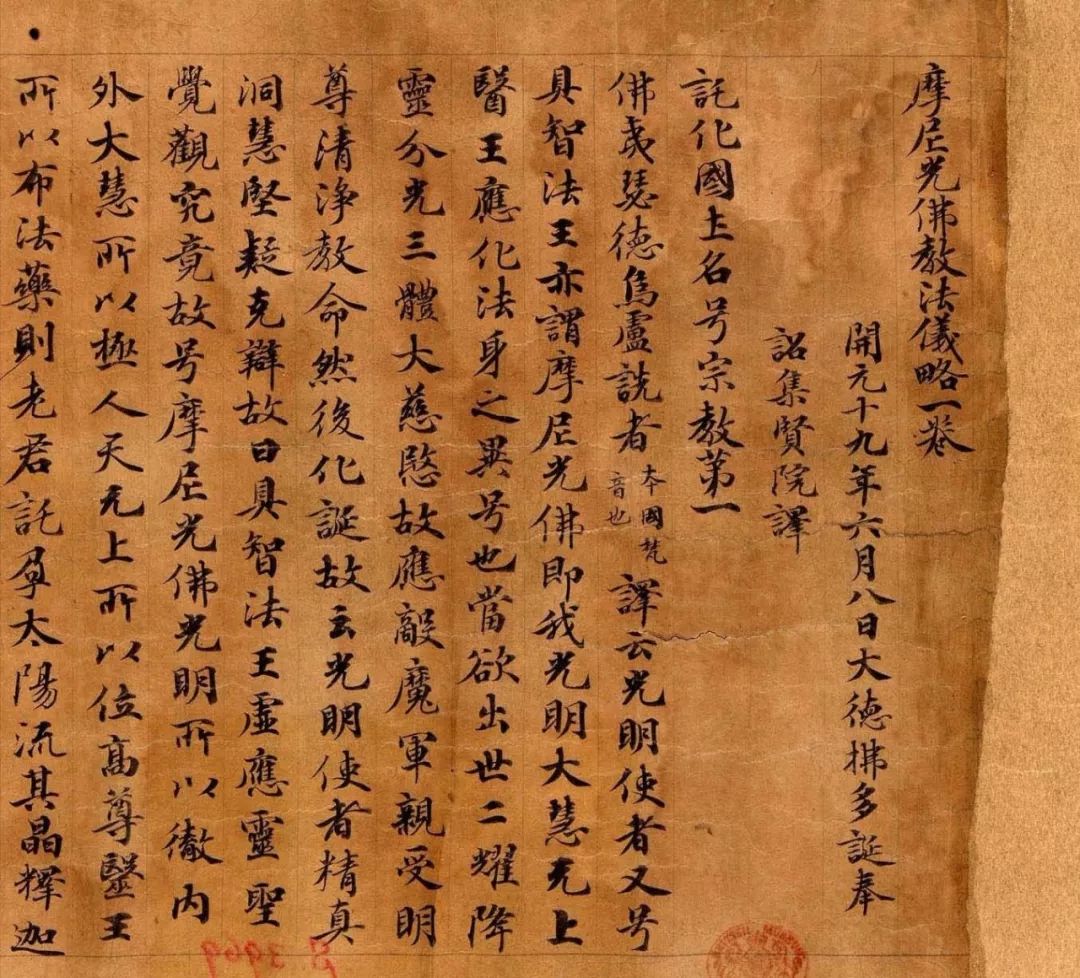 摩尼光佛教法儀略一卷
開元十九年六月八日大德拂多誕奉
詔集賢院譯
託化國土名号宗教第一
佛夷瑟德烏盧詵者本國梵音也譯云光明使者又号
具智法王亦謂摩尼光佛即我光明大慧无上
醫王應化法身之異号也當欲出世二耀降
靈分光三體大慈愍故應敵魔軍親受明
尊清淨教命然後化誕故云光明使者精真
洞慧堅疑克辯故曰具智法王虛應靈聖
覺觀究竟故号摩尼光佛光明所以徹內
外大慧所以極人天无上所以位高尊毉王
所以布法藥則老君託孕太陽流其晶釋迦